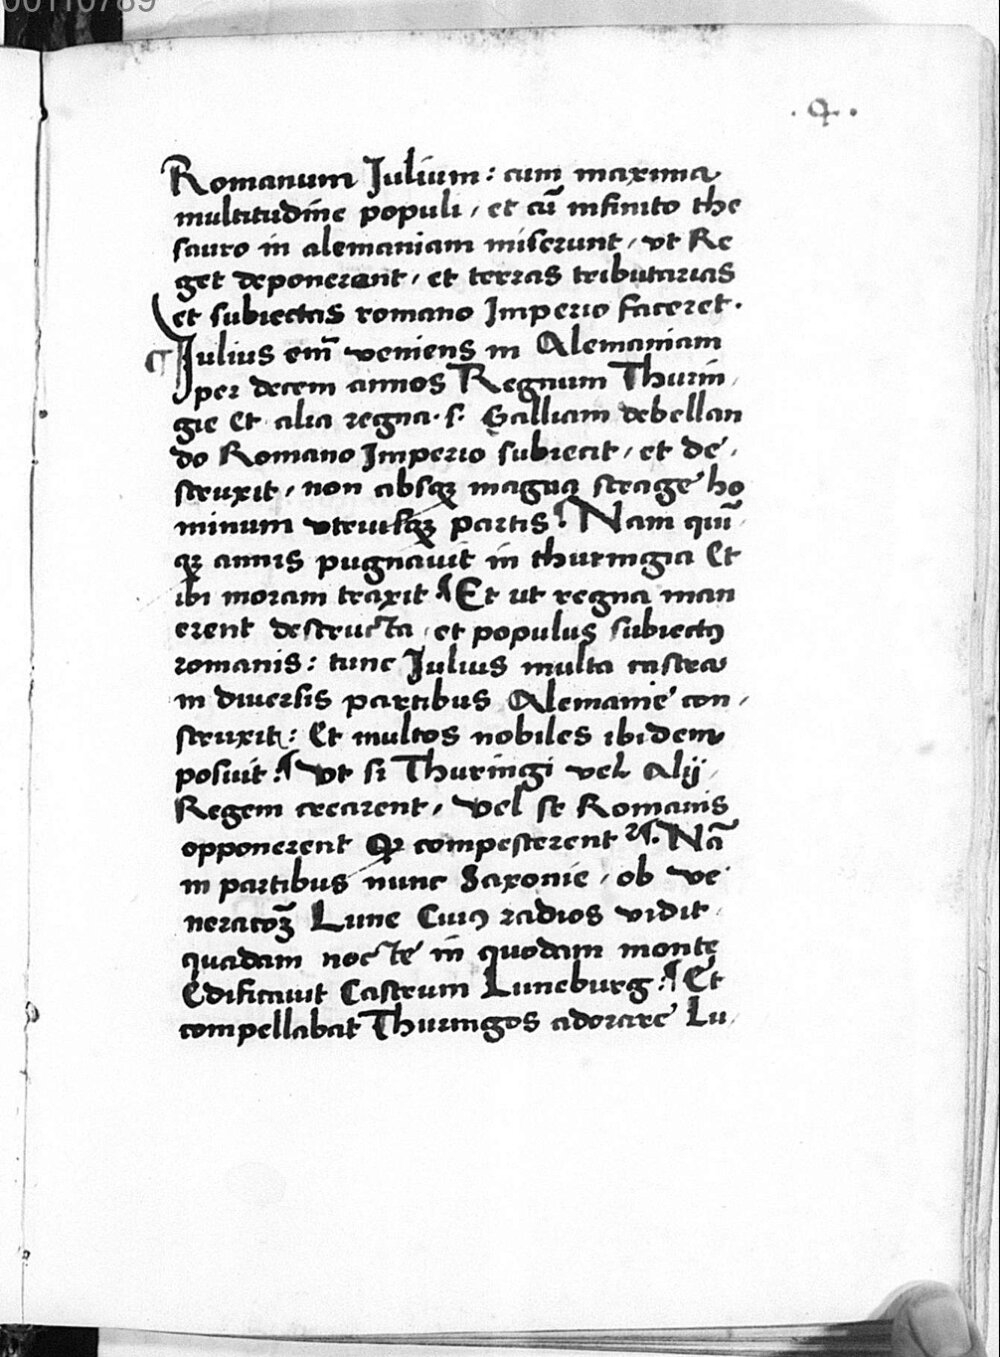 00110789
.4.
Romanum Julium: cum maxima
multitudine populi, et cū infinito the
sauro in alemaniam miserunt, vt Re
get deponerent, et terras tributarias
et subiectas romano Imperio faceret.
¶ Julius em̄ veniens in Alemaniam
per decem annos Regnum Thurin,
gie Et alia regna. s. Galliam debellan
do Romano Imperio subiecit, et de,
struxit, non absqꝫ magna strage ho
minum vtriusqꝫ partis. ¶ Nam qui̅
qꝫ annis pugnavit in thuringia Et
ibi moram traxit ¶ Et ut regna man
erent destructa, et populus subiectꝰ
romanis: tunc Julius multa castra
in diuersis partibus Alemanie con,
struxit: Et multos nobiles ibidem
posuit. ¶ Vt si Thuringi vel Alij,
Regem crearent, vel se Romanis
opponerent qꝫ compescerent ¶. Nā
in partibus nunc Saxonie, ob ve
neracoꝫ Lune Cuiꝰ radios vidit,
quadam nocte in quodam monte
Edificauit Castrum Luneburg. ¶ Et
compellabat Thuringos adorare Lu,